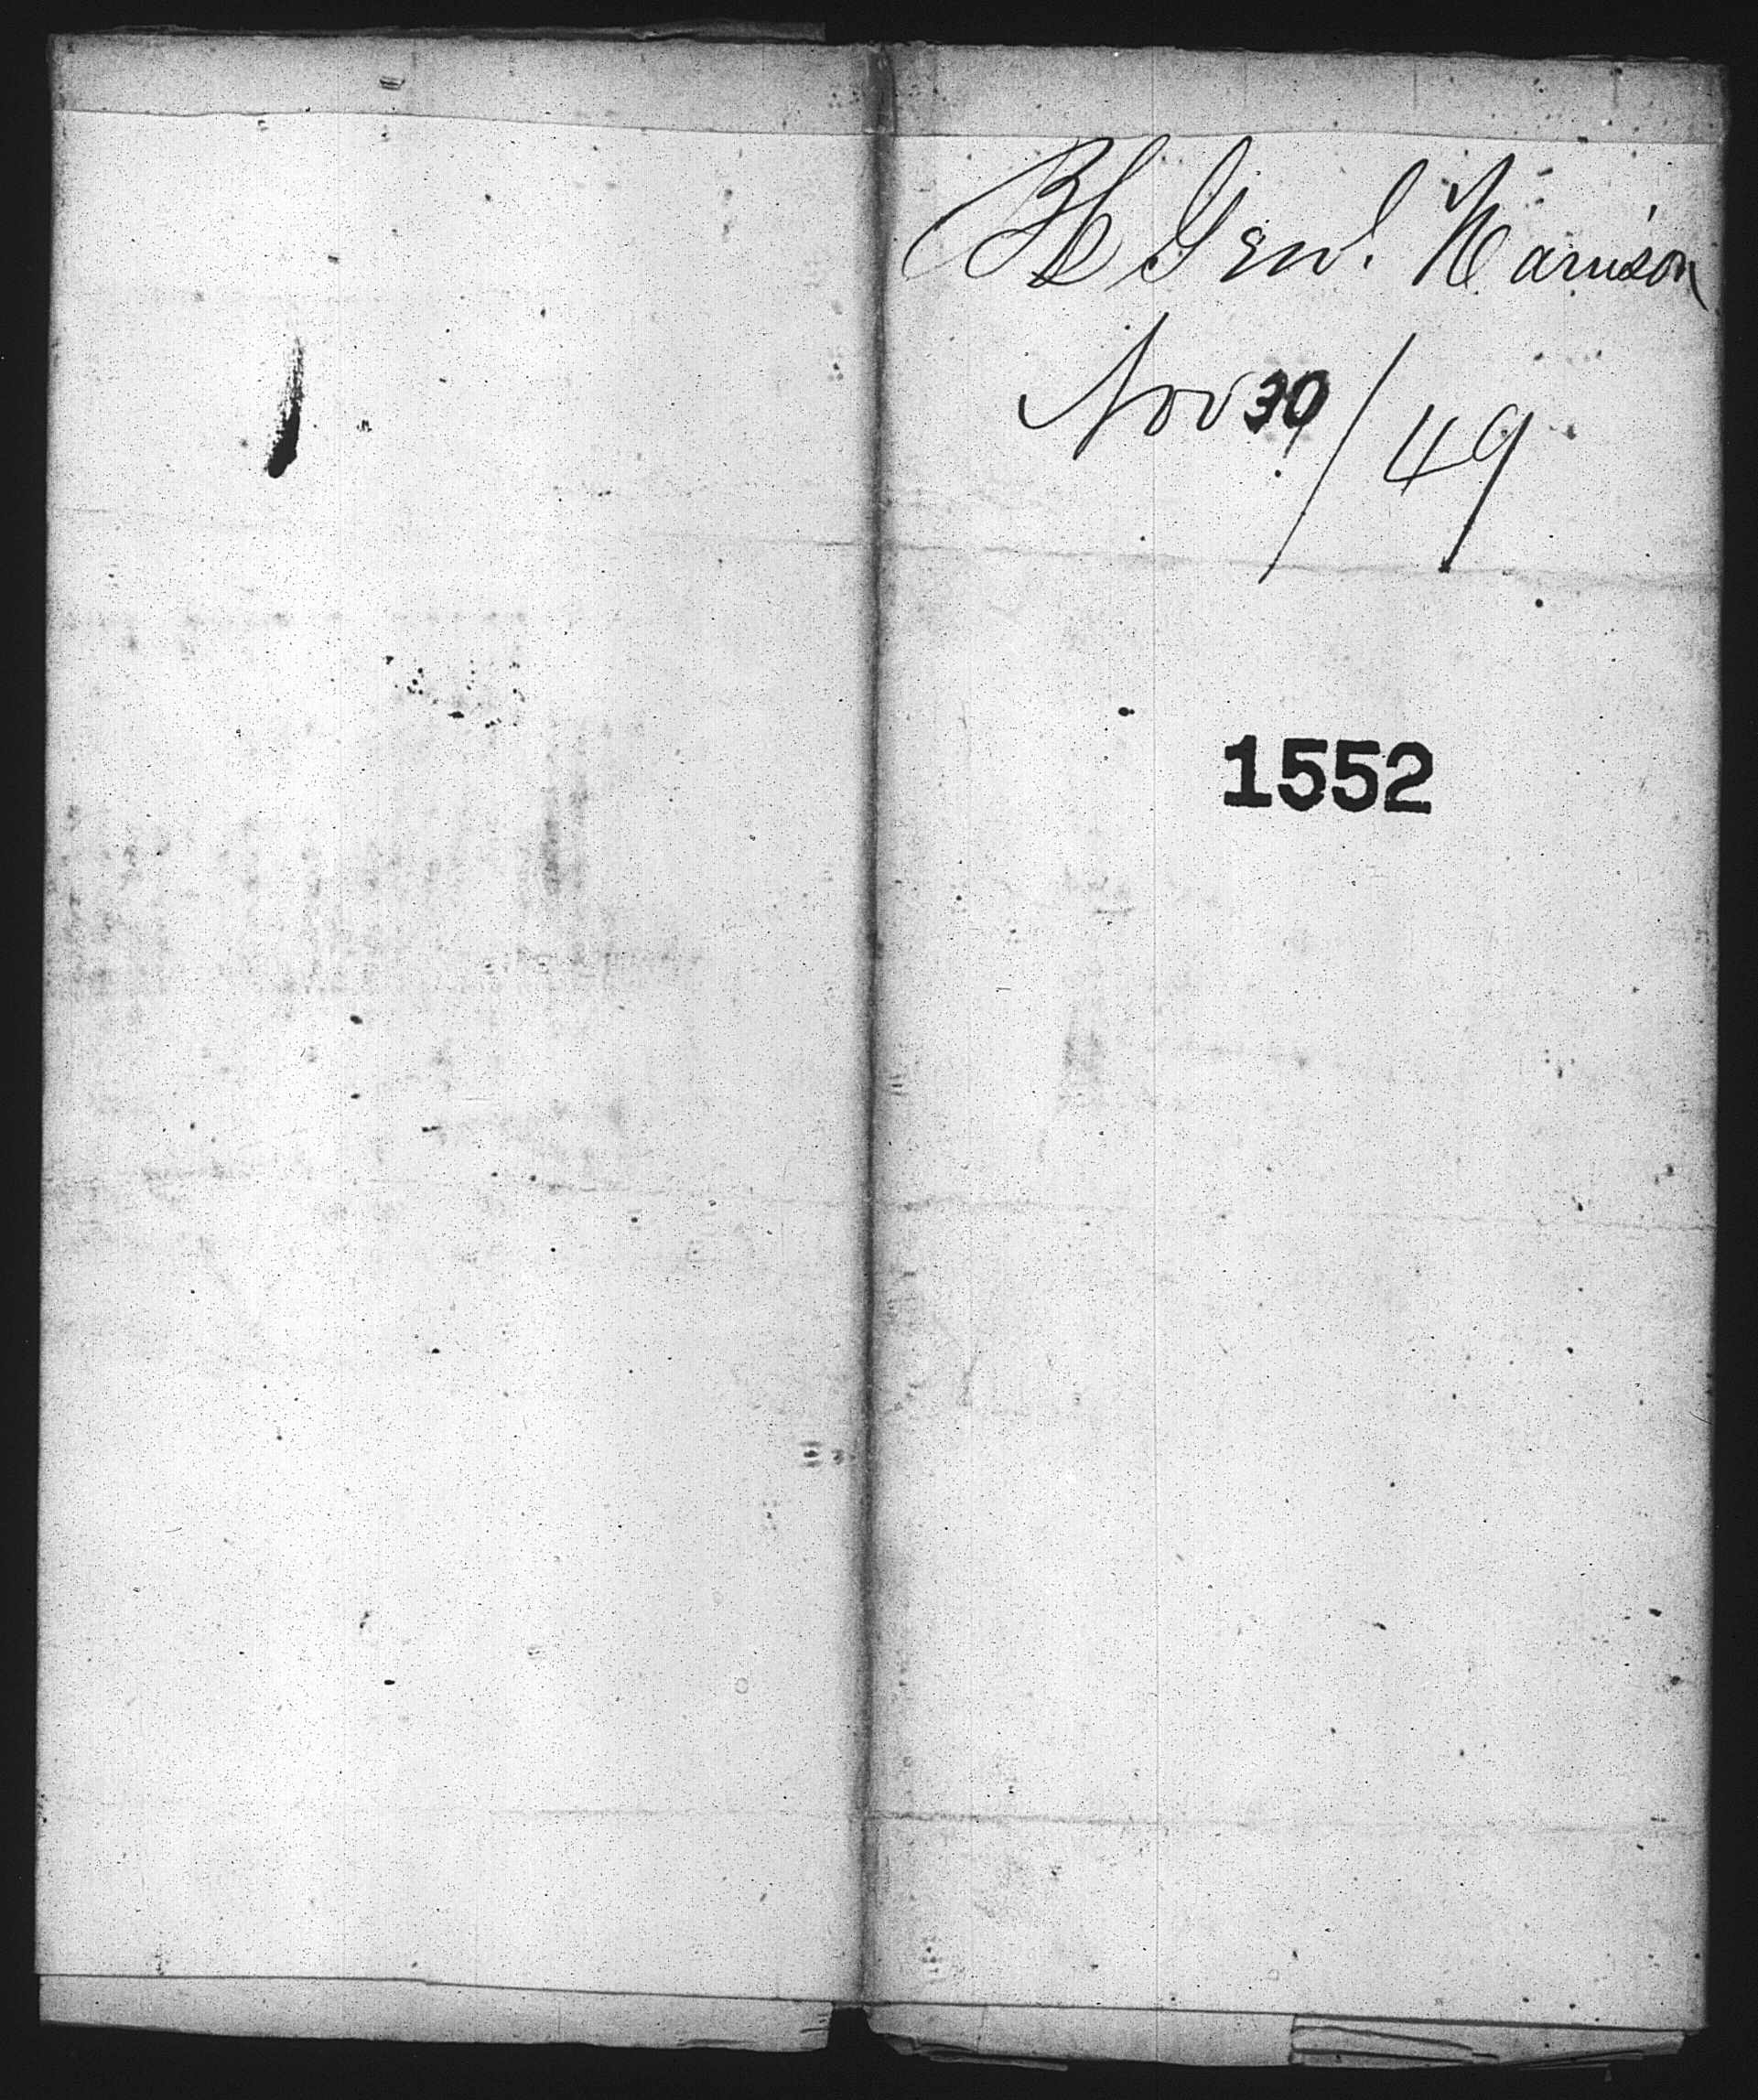 Bk Genl. Harrison
Nov 30/49
1552